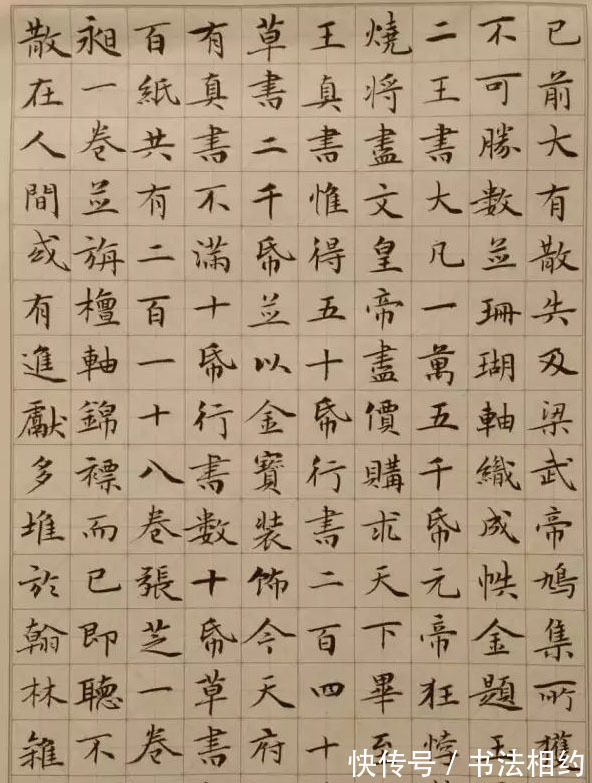 已前大有散失及梁武帝鳩集所獲
不可勝數並珊瑚軸織成帙金題玉
二王書大凡一萬五千帋元帝狂悖
燒将盡文皇帝盡價購求天下畢至
王真書惟得五十帋行書二百四十
草書二千帋並以金寶裝飾今天府
有真書不滿十帋行書数十帋草書
百紙共有二百一十八卷張芝一卷
昶一卷並旃檀軸錦褾而已即聽不
散在人間或有進獻多堆於翰林雜
快传号 / 书法相约